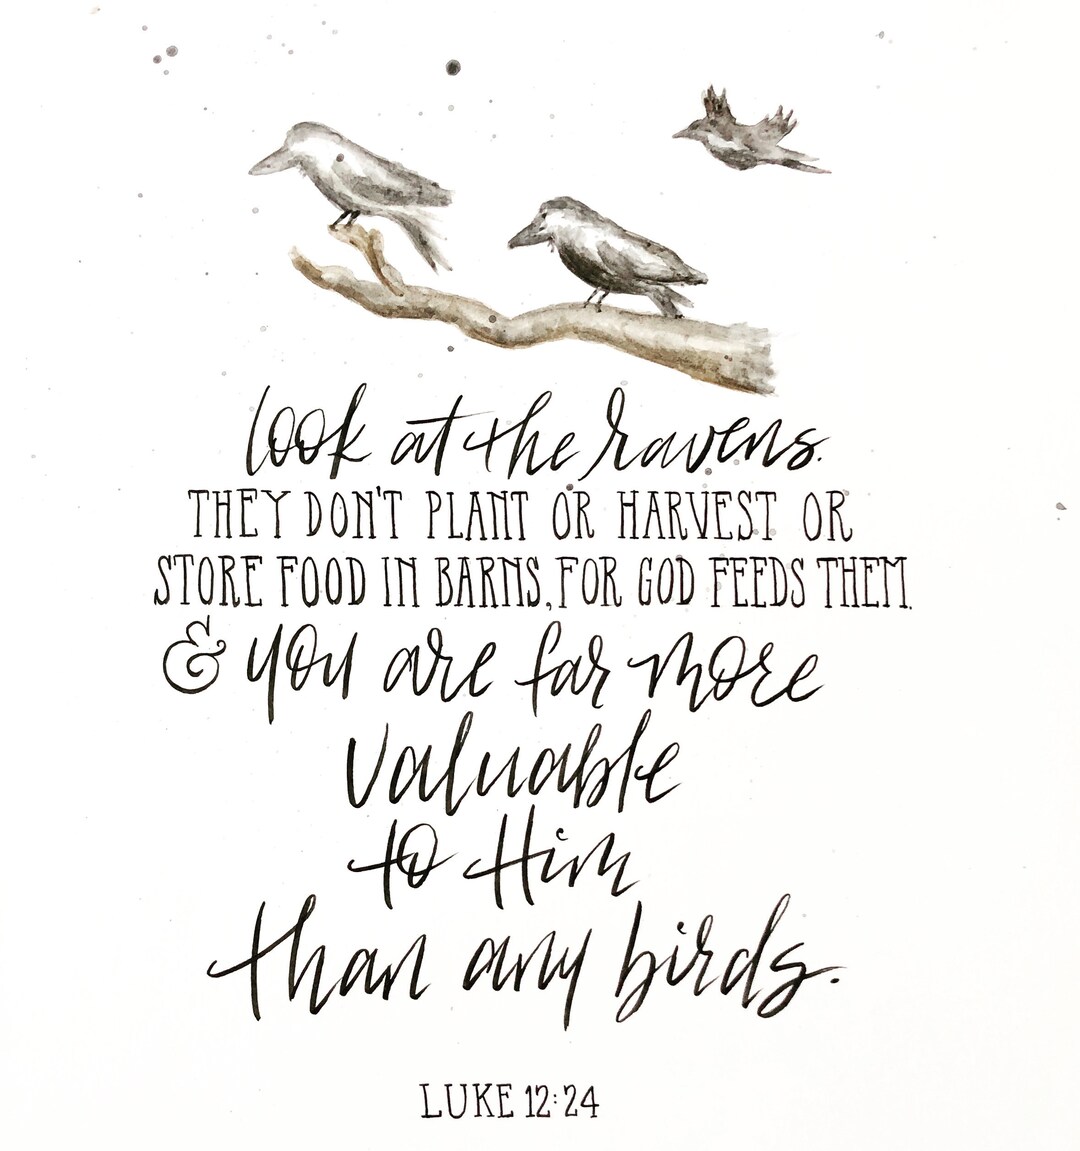 look at the ravens.
THEY DON'T PLANT OR HARVEST OR
STORE FOOD IN BARNS, FOR GOD FEEDS THEM.
& you are far more
valuable
to Him
than any birds.
LUKE 12:24